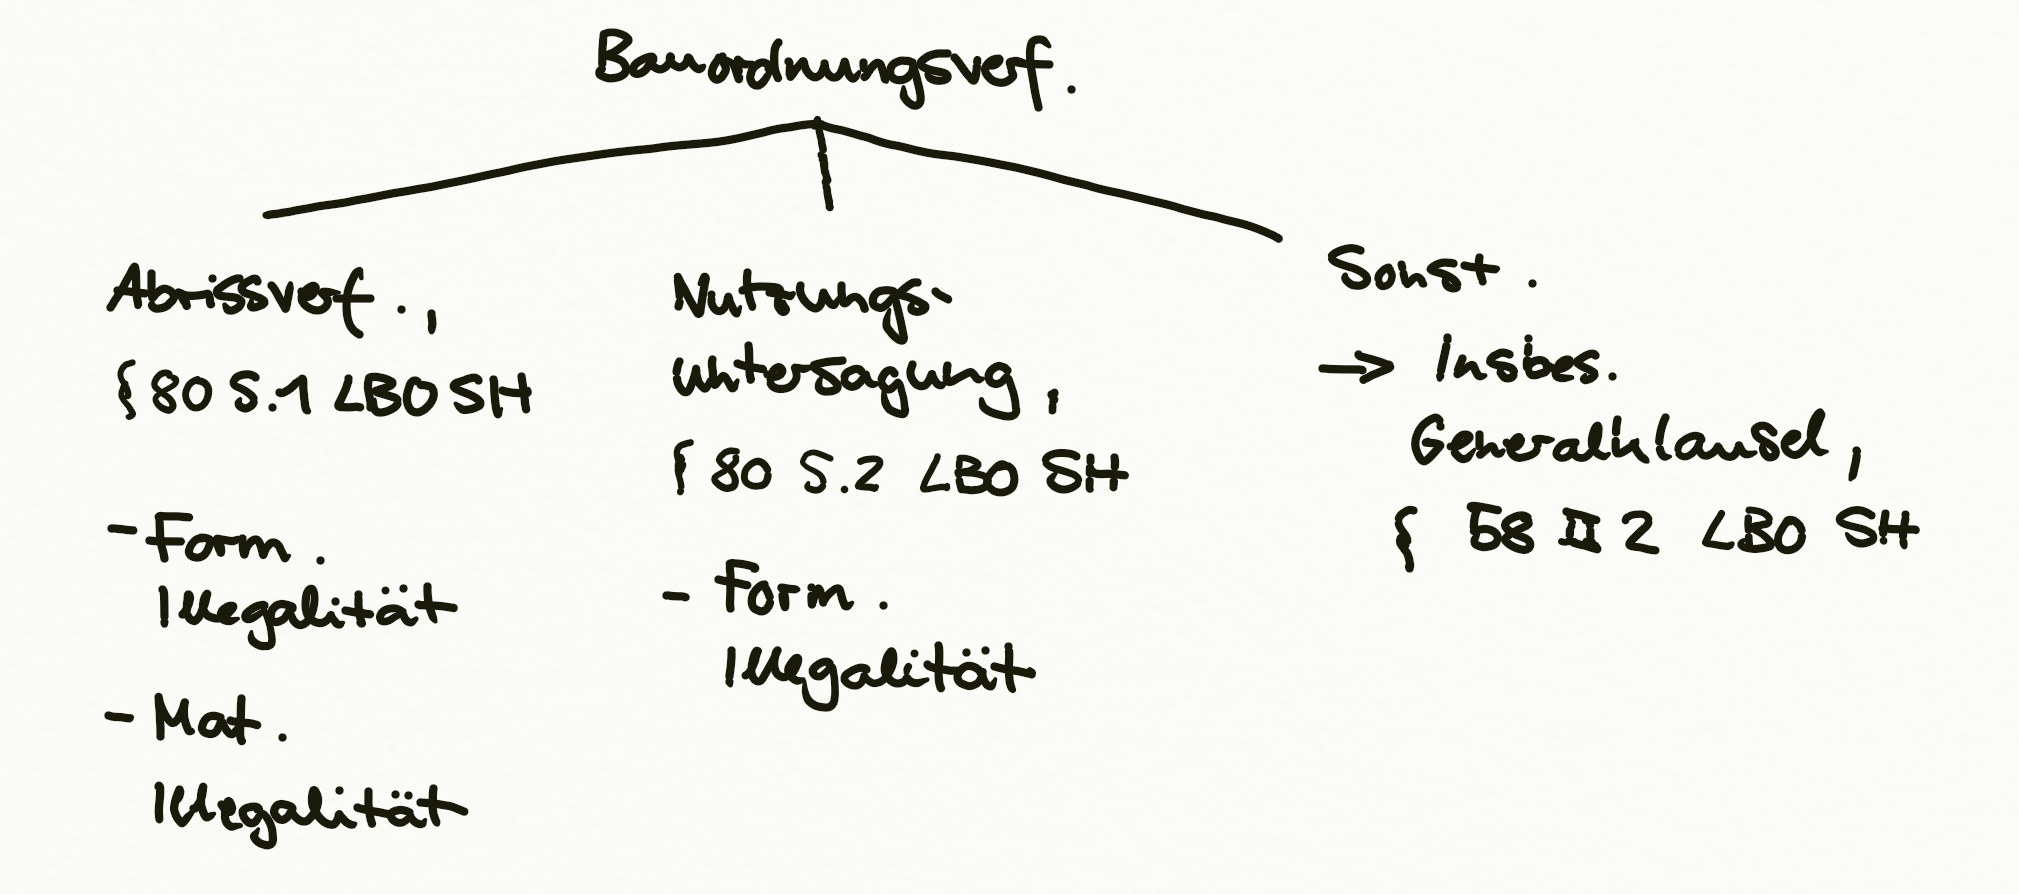 Bauordnungsverf.
Abrissverf.,
§ 80 S.1 LBO SH
- Form.
Illegalität
- Mat.
Illegalität
Nutzungs-
untersagung,
§ 80 S.2 LBO SH
- Form.
Illegalität
Sonst.
→ Insbes.
Generalklausel,
§ 58 II 2 LBO SH